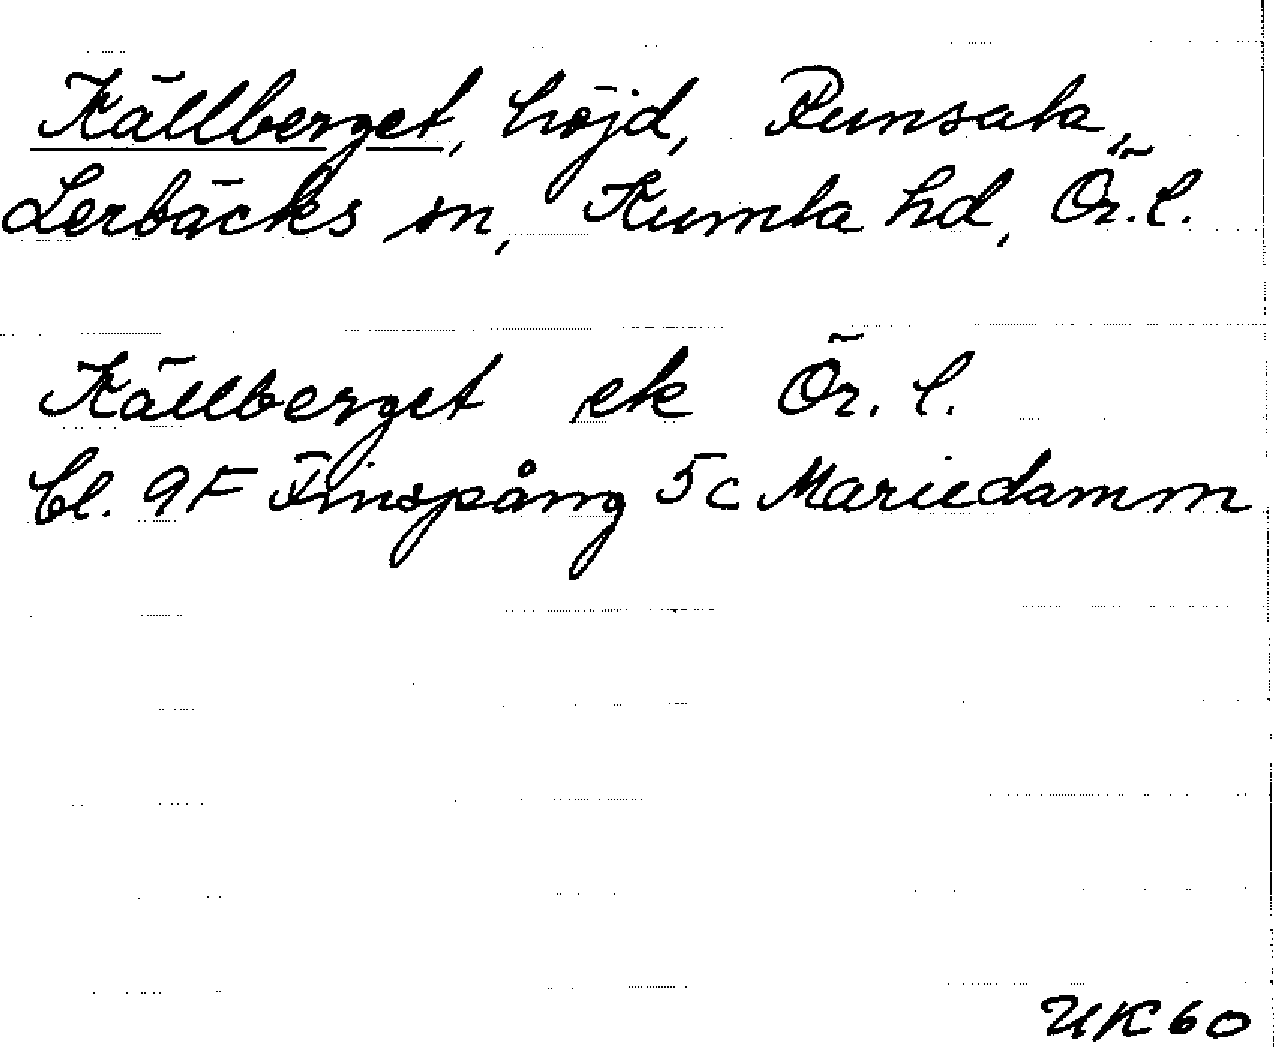 Källberget, höjd, Runsala,
Lerbäcks sn, Kumla hd, Ör. l.
Källberget ek Ör. l.
bl. 9F Finspång 5c Mariedamm
UK 60